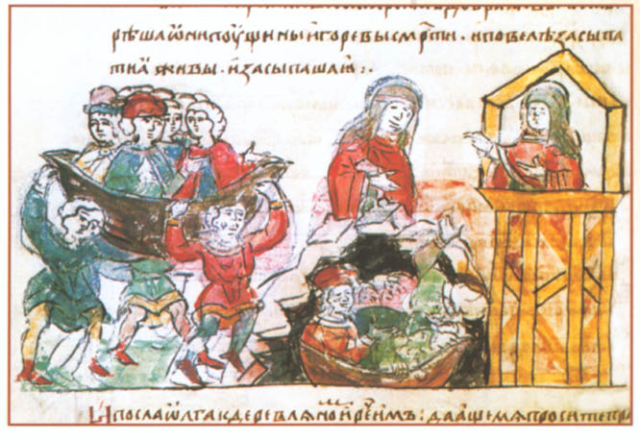 рѣша ѡни поущены игоревы смр҃ти . и повелѣ засыпа
ти ꙗ живы . и засыпаша ꙗ :.
И посла ѡлга к деревлѧно и реⷱ имъ : да аще мѧ просите пра